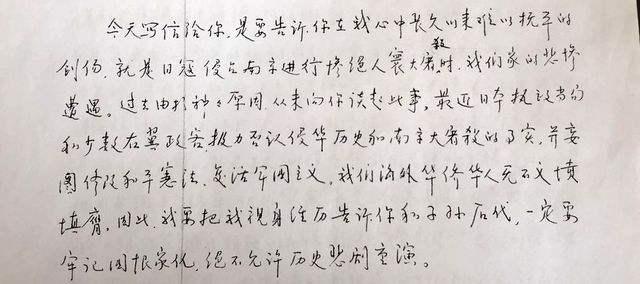 今天写信给你,是要告诉你在我心中长久以来难以抚平的
创伤,就是日冠侵占南京进行惨绝人寰大屠杀时,我们家的悲惨
遭遇。过去由于种种原因,从未向你谈起此事。最近日本执政当局
和少数右翼政客极力否认侵华历史和南京大屠殺的事实,并妄
图修改和平憲法,复活军国主义,我们海外华侨华人无不义愤
填膺。因此,我要把我親身经历告诉你和子孙后代,一定要
牢记国恨家仇,绝不允许历史悲剧重演。